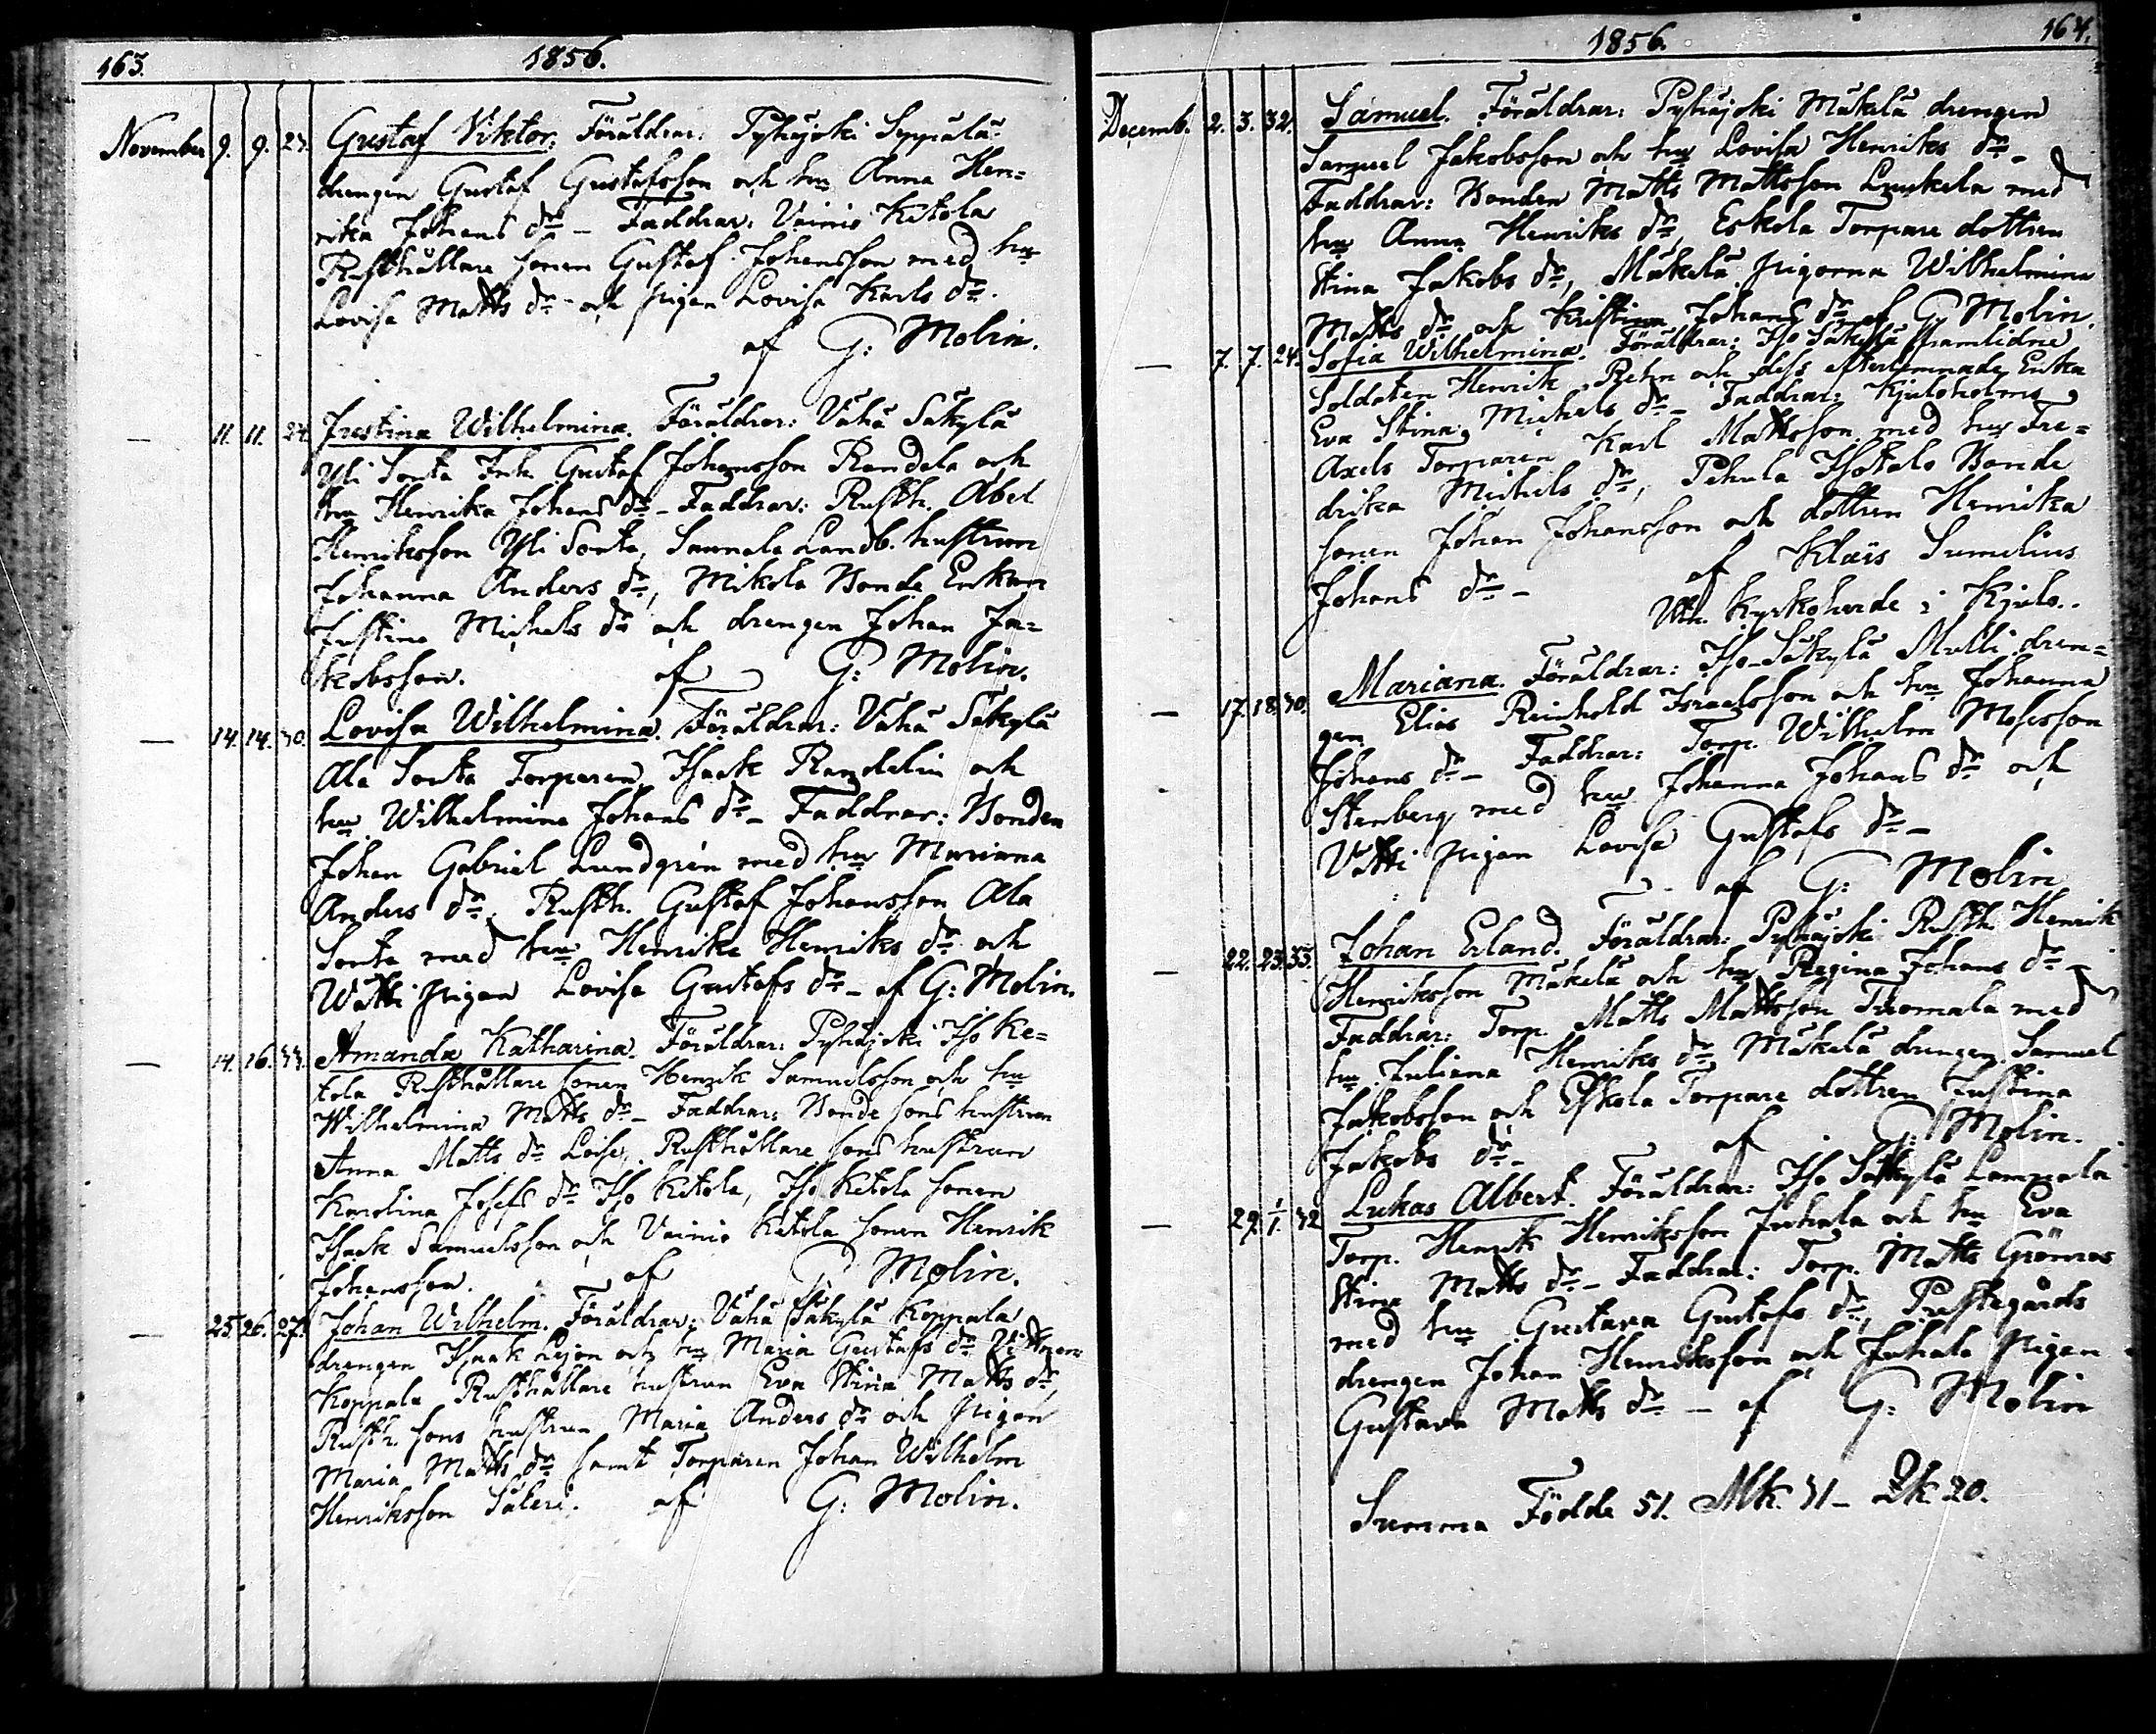 163.
1856.
November 9. 9. 27. Gustaf Viktor. Föräldrar: Pyhäjoki Seppälä
drengen Gustaf Gustafsson och hu Anna Hen=
rika Johans dr - Faddrar: Vainio Kitola
Rusthållare sonen Gustaf Johansson med hu
Lovisa Matts dr och pigan Lovisa Karls dr.
af G: Molin.
— 11. 11. 24. Justina Wilhelmina. Föräldrar: Vähä Säkylä
Yli Sonta Inh. Gustaf Johansson Randala och
hu Henrika Johans dr - Faddrar: Rusth. Abel
Henriksson Yli Sonta, Saunala Landb. hustrun
Johanna Anders dr, Mikola Bonde Enkan
Justina Michels dr och drengen Johan Ja=
kobsson. af G: Molin.
— 14. 14. 30. Lovisa Wilhelmina. Föräldrar: Vähä Säkylä
Ala Sonta Torparen Isack Randelin och
hu Wilhelmina Johans dr - Faddrar: Bonden
Johan Gabriel Lundgrén med hu Mariana
Anders dr. Rusth. Gustaf Johansson Ala
Sonta med hu Henrika Henriks dr och
Watti pigan Lovisa Gustafs dr - af G: Molin.
— 14. 16. 33. Amanda Katharina. Föräldrar: Pyhäjoki Iso Ke=
tola Rusthållare sonen Henrik Samuelsson och hu
Wilhelmina Matts dr - Faddrar: Bonde sons hustrun
Anna Matts dr Loise, Rusthållare sons hustrun
Karolina Josefs dr Iso Kitola, Iso Kitola sonen
Isack Samuelsson och Vainio Kitola sonen Henrik
Johansson. af G: Molin.
— 25. 26. 27. Johan Wilhelm. Föräldrar: Vähä Säkylä Koppala
drengen Isaak Lejon och hu Maria Gustafs dr
Koppala Rusthållare hustrun Eva Stina Matts dr,
Rusth. sons hustrun Maria Anders dr och pigan
Maria Matts dr samt Torparen Johan Wilhelm
Henriksson Säteri. af G: Molin.
1856.
164.
Decemb. 2. 3. 32. Samuel. Föräldrar: Pyhäjoki Mäkelä drengen
Samuel Jakobsson och hu Lovisa Henriks dr -
Faddrar: Bonden Matts Mattsson Luukela med
hu Anna Henriks dr, Eskola Torpare dottren
Stina Jakobs dr, Mäkelä pigorna Wilhelmina
Matts dr och Kristina Johans dr af G. Molin.
— 7. 7. 24. Sofia Wilhelmina. Föräldrar: Iso Säkylä framlidne
Soldaten Henrik Rehn och dess efterlemnade Enka
Eva Stina Michels dr - Faddrar: Kjuloholms
Axels Torparen Karl Mattsson med hu Fre=
drika Michels dr, Pehula Isotalo Bonde
sonen Johan Johansson och dottren Henrika
Johans dr - af Klas Sumelius
Vik. Kyrkoherde i Kjulo.
— 17. 18. 30. Mariana. Föräldrar: Iso-Säkylä Mulli dren=
gen Elias Reinhold Israelsson och hu Johanna
Johans dr - Faddrar: Torp. Wilhelm Mosesson
Stenberg med hu Johanna Johans dr och
Vatti pigan Lovisa Gustafs dr -
af G: Molin
— 22. 23. 35. Johan Erland. Föräldrar: Pyhäjoki Rusth. Henrik
Henriksson Mäkelä och hu Regina Johans dr -
Faddrar: Torp. Matts Mattsson Tuomala med
hu Juliana Henriks dr Mäkelä drengen Samuel
Jakobsson och Eskola Torpare dottren Justina
Jakobs dr - af G: Molin.
— 29. 1/1. 32 Lukas Albert. Föräldrar: Iso Säkylä Lampala
Torp. Henrik Henriksson Juhala och hu Eva
Stina Matts dr - Faddrar: Torp. Matts Grönros
med hu Gustava Gustafs dr, Prestegårds
drengen Johan Henriksson och Juhala pigan
Gustava Matts dr - af G: Molin
Summa Födde 51. Mk. 31 - Qk 20.